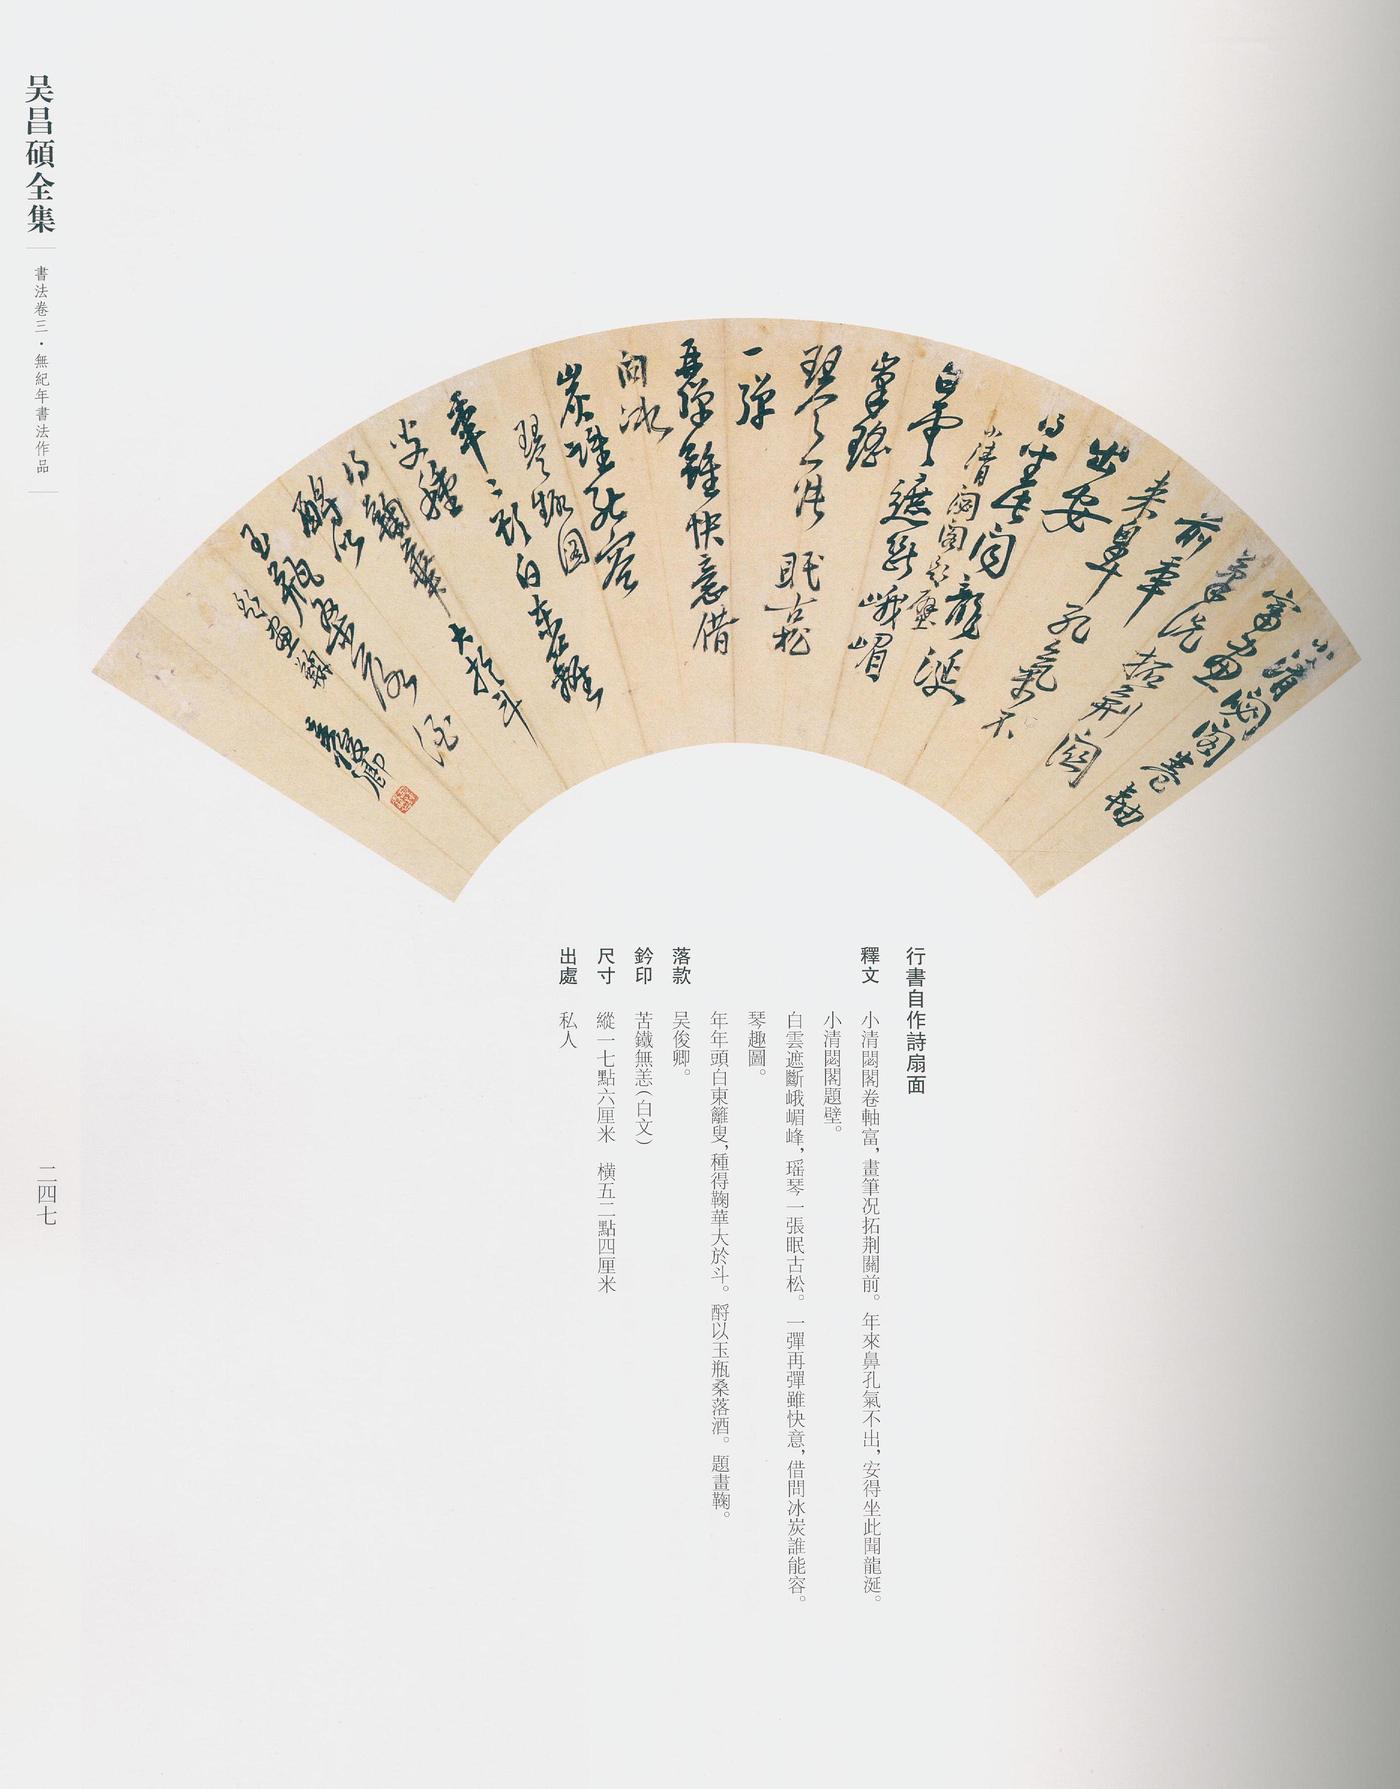 吴昌碩全集
書法卷三·無紀年書法作品
二四七
小清閟閣卷軸
富畫
筆況拓荆關
前年
来鼻孔氣不
出安
得坐此聞龍涎
小清閟閣題壁
白雲遮斷峨嵋
峯瑤
琴一張眠古松
一彈
再彈雖快意借
問冰
炭誰能容
琴趣圖
年年頭白東籬
叟種
得鞠華大於斗
酹以
玉瓶桑落酒
題畫鞠 吴俊卿
行書自作詩扇面
釋文 小清閟閣卷軸富,畫筆况拓荆關前。年來鼻孔氣不出,安得坐此聞龍涎。
小清閟閣題壁。
白雲遮斷峨嵋峰,瑶琴一張眠古松。一彈再彈雖快意,借問冰炭誰能容。
琴趣圖。
年年頭白東籬叟,種得鞠華大於斗。酹以玉瓶桑落酒。題畫鞠。
落款 吴俊卿。
鈐印 苦鐵無恙(白文)
尺寸 縱一七點六厘米 横五二點四厘米
出處 私人